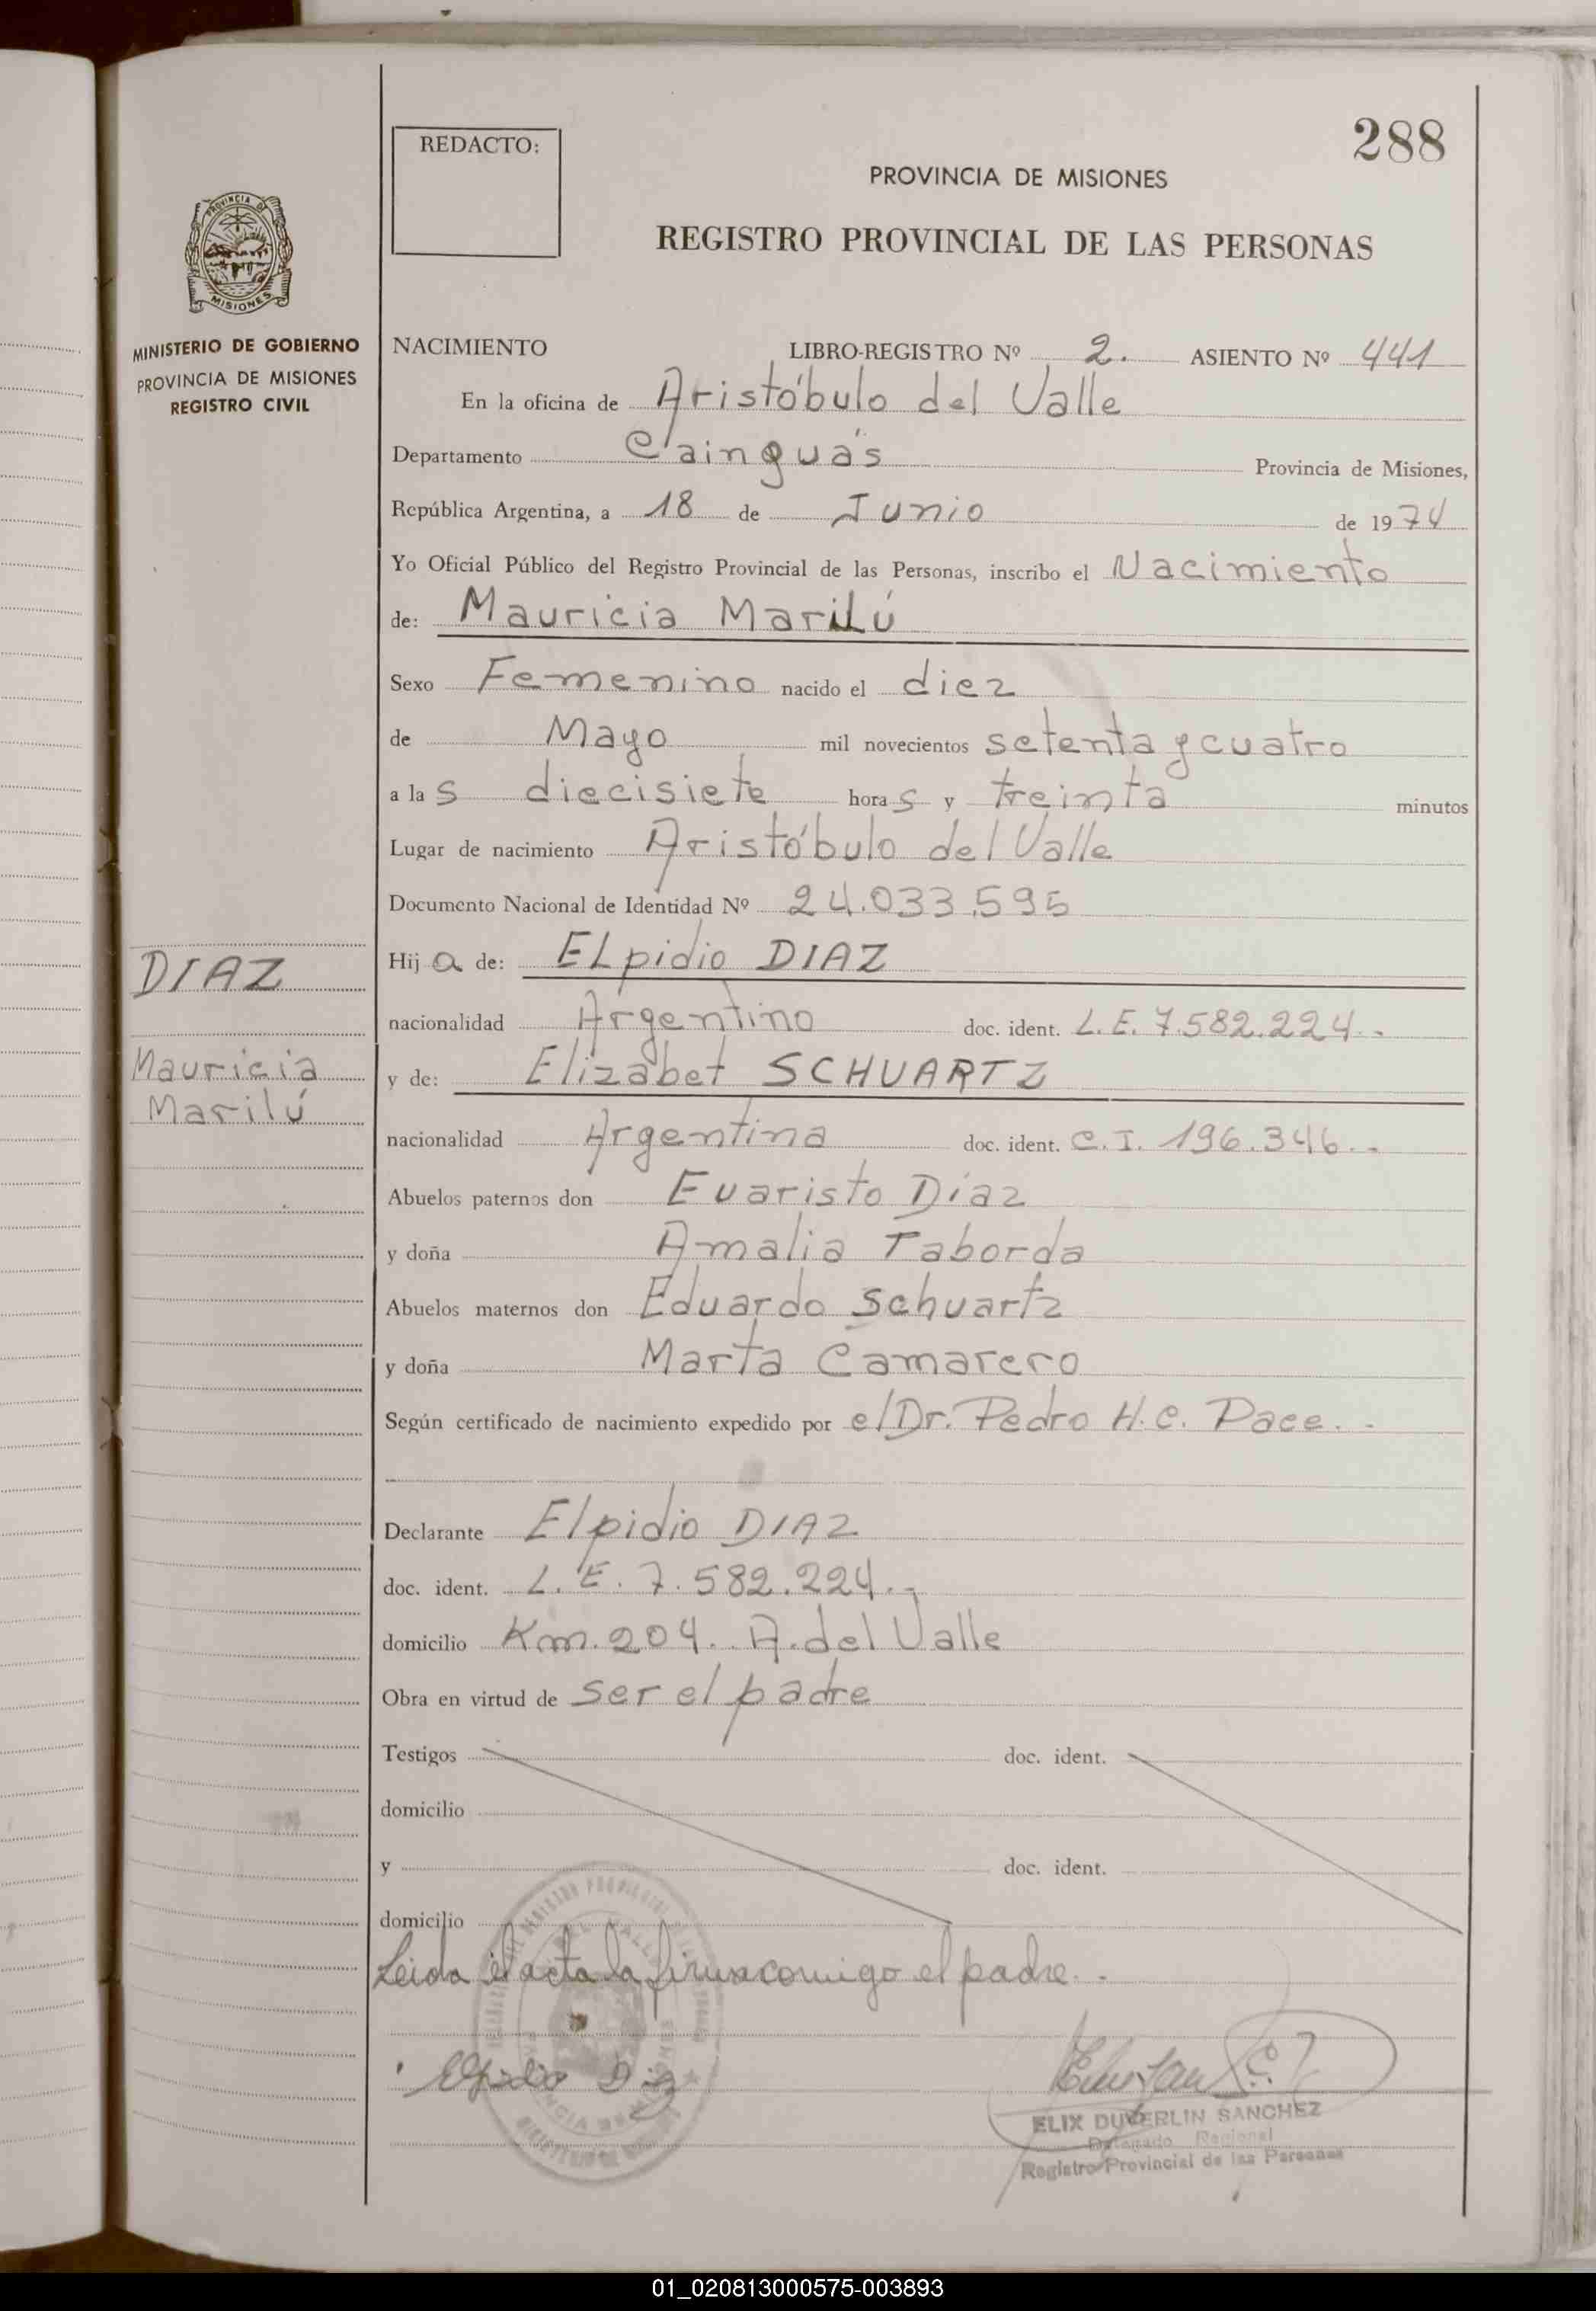 288
REDACTO:
PROVINCIA DE MISIONES
REGISTRO PROVINCIAL DE LAS PERSONAS
PROVINCIA DE
MISIONES
MINISTERIO DE GOBIERNO
PROVINCIA DE MISIONES
REGISTRO CIVIL
NACIMIENTO LIBRO-REGISTRO Nº 2. ASIENTO Nº 441
En la oficina de Aristóbulo del Valle
Departamento Cainguás Provincia de Misiones,
República Argentina, a 18 de Junio de 1974
Yo Oficial Público del Registro Provincial de las Personas, inscribo el Nacimiento
de: Mauricia Marilú
Sexo Femenino nacido el diez
de Mayo mil novecientos setenta y cuatro
a las diecisiete horas y treinta minutos
Lugar de nacimiento Aristóbulo del Valle
Documento Nacional de Identidad Nº 24.033.595
DIAZ
Hija de: ELpidio DIAZ
nacionalidad Argentino doc. ident. L.E. 7.582.224.-
Mauricia
Marilú
y de: Elizabet SCHUARTZ
nacionalidad Argentina doc. ident. C.I. 196.346.-
Abuelos paternos don Evaristo Díaz
y doña Amalia Taborda
Abuelos maternos don Eduardo Schuartz
y doña Marta Camarero
Según certificado de nacimiento expedido por el Dr. Pedro H.C. Pace.-
Declarante Elpidio DIAZ
doc. ident. L.E. 7.582.224.-
domicilio Km. 204. A. del Valle
Obra en virtud de ser el padre
Testigos doc. ident.
domicilio
y doc. ident.
domicilio
Leida el acta la firma comigo el padre.-
Elpidio Diaz
ELIX DUVERLIN SANCHEZ
Delegado Regional
Registro Provincial de las Personas
01_020813000575-003893